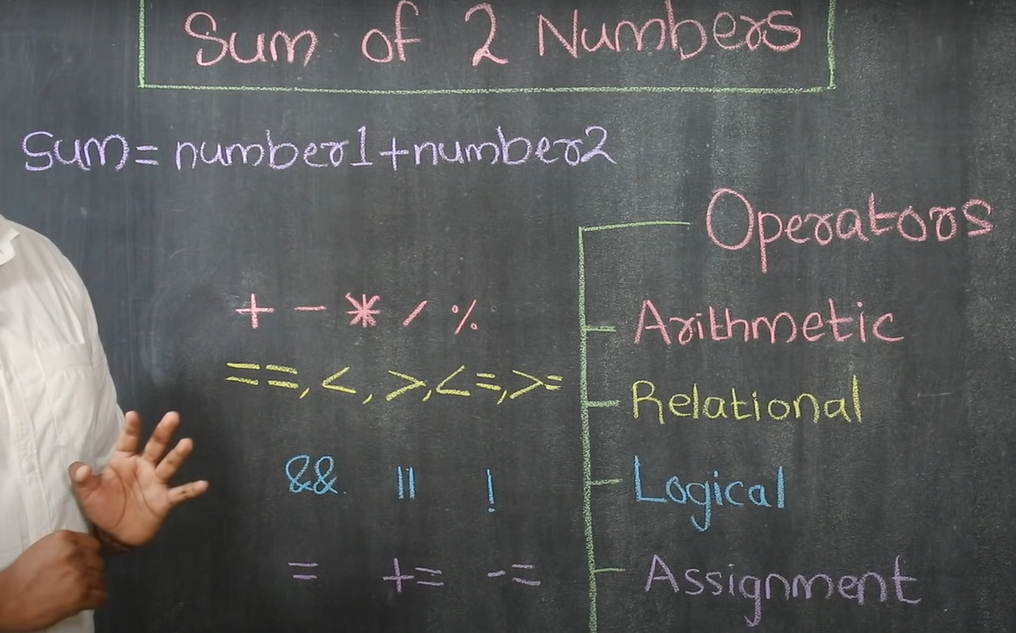 Sum of 2 Numbers
Sum= number1+number2
Operators
+ - * / % Arithmetic
==, <, >, <=, >= Relational
&& || ! Logical
= += -= Assignment